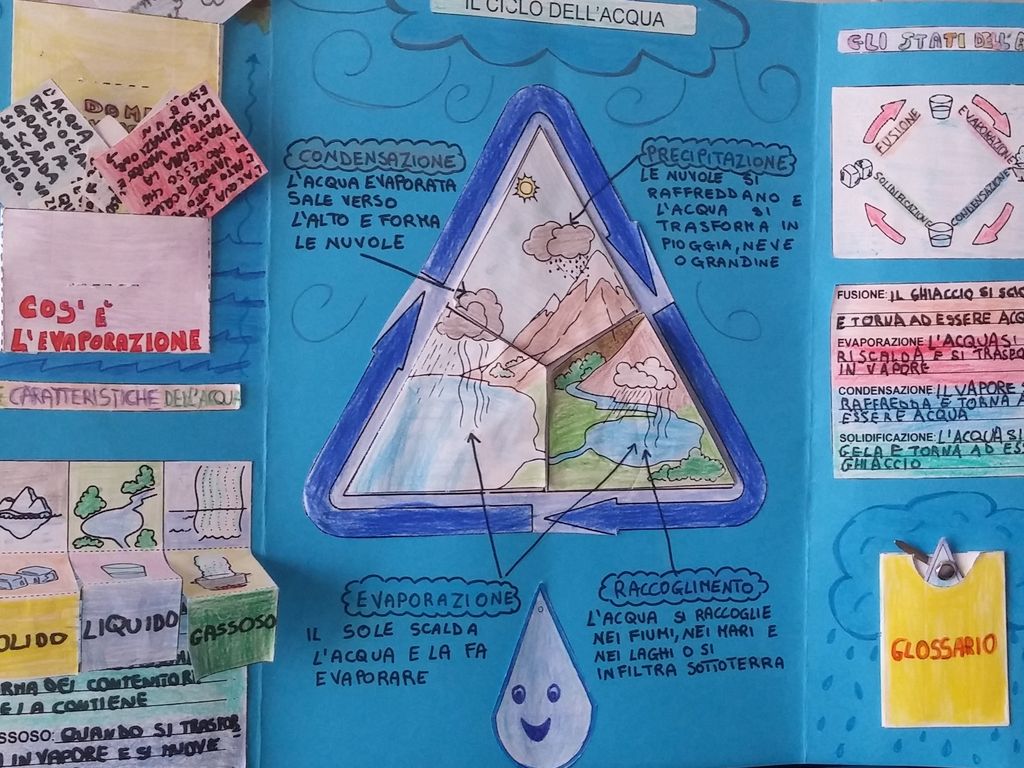 IL CICLO DELL'ACQUA
COS'È
L'EVAPORAZIONE
CARATTERISTICHE DELL'ACQUA
LIQUIDO
GASSOSO
DEI CONTENITOR
LA CONTIENE
QUANDO SI TRASFOR
IN VAPORE E SI MUOVE
CONDENSAZIONE
L'ACQUA EVAPORATA
SALE VERSO
L'ALTO E FORMA
LE NUVOLE
PRECIPITAZIONE
LE NUVOLE SI
RAFFREDDANO E
L'ACQUA SI
TRASFORMA IN
PIOGGIA, NEVE
O GRANDINE
EVAPORAZIONE
IL SOLE SCALDA
L'ACQUA E LA FA
EVAPORARE
RACCOGLIMENTO
L'ACQUA SI RACCOGLIE
NEI FIUMI, NEI MARI E
NEI LAGHI O SI
INFILTRA SOTTOTERRA
GLI STATI DELL'A
FUSIONE
EVAPORAZIONE
SOLIDIFICAZIONE
CONDENSAZIONE
FUSIONE: IL GHIACCIO SI SCIO
E TORNA AD ESSERE ACQ
EVAPORAZIONE L'ACQUA SI
RISCALDA E SI TRASFO
IN VAPORE
CONDENSAZIONE: IL VAPORE S
RAFFREDDA E TORNA A
ESSERE ACQUA
SOLIDIFICAZIONE: L'ACQUA SI
GELA E TORNA AD ES
GHIACCIO
GLOSSARIO